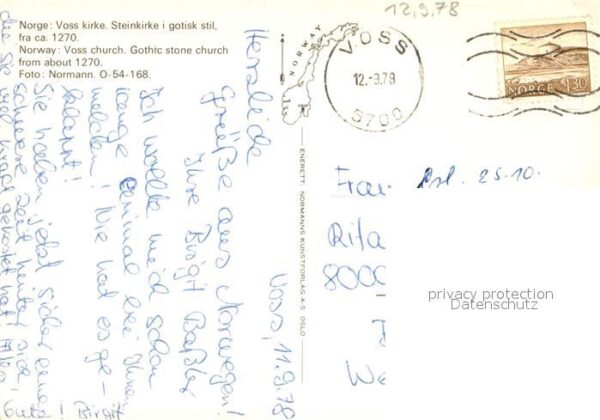 Norge: Voss kirke. Steinkirke i gotisk stil,
fra ca. 1270.
Norway: Voss church. Gothic stone church
from about 1270.
Foto: Normann. O-54-168.
NORWAY
VOSS
12.-9.78
5700
12.9.78
NORGE 1.30
ENERETT: NORMANNS KUNSTFORLAG A/S OSLO
Voss, 11.9.78
Herzliche
Grüße aus Norwegen!
Ihre Birgit
Ich wollte mich schon
lange einmal bei Ihnen
melden! Nie hat es ge-
klappt!
Sie haben jetzt sicher eine
schwere Zeit hinter sich,
die Sie viel Kraft gekostet hat! Alles
Gute! Birgit
Frau
25.10.
Rita
8000
privacy protection
Datenschutz